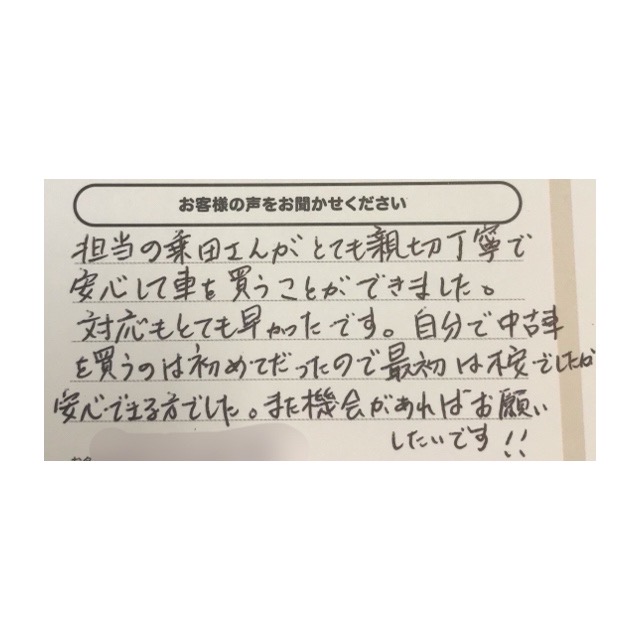 お客様の声をお聞かせください
担当の乗田さんがとても親切丁寧で
安心して車を買うことができました。
対応もとても早かったです。自分で中古車
を買うのは初めてだったので最初は不安でしたが
安心できる方でした。また機会があればお願い
したいです!!